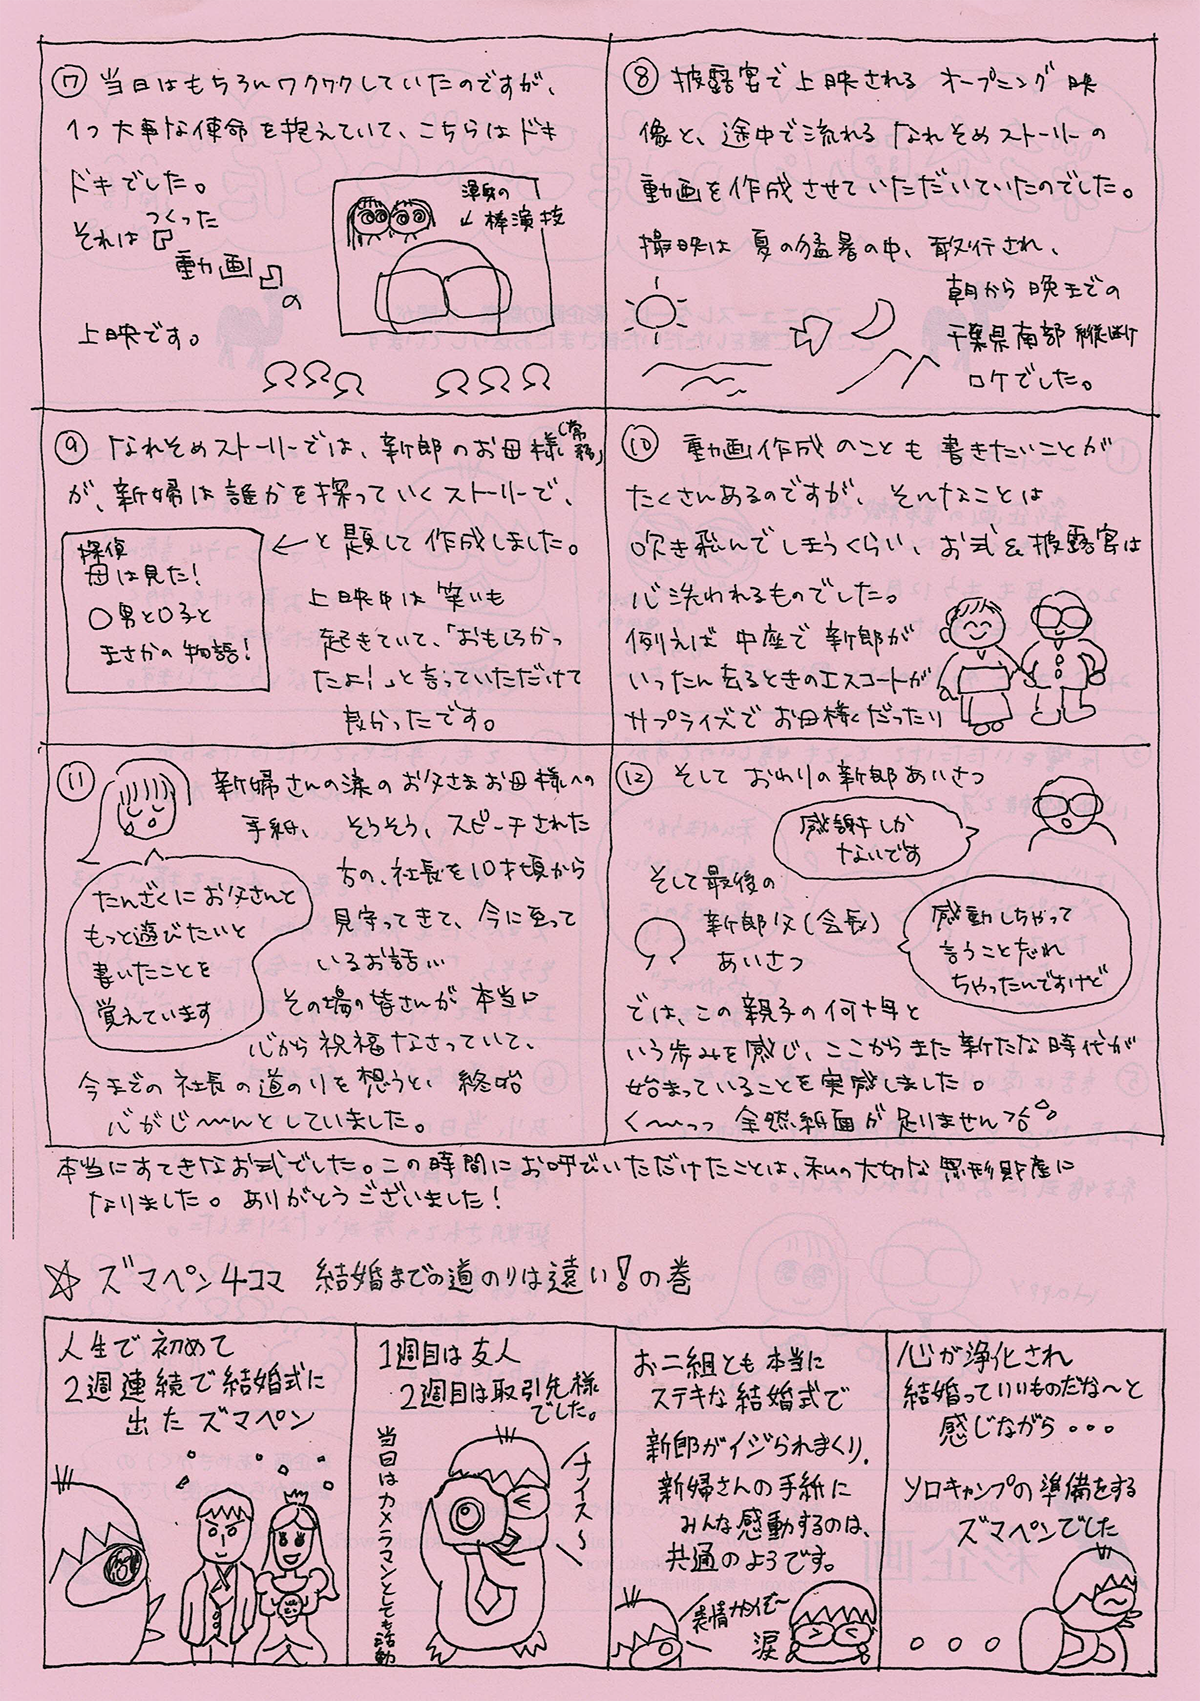 ⑦ 当日はもちろんワクワクしていたのですが、
1つ大事な使命を抱えていて、こちらはドキ
ドキでした。
それは『つくった
動画』の
上映です。
渾身の
← 棒演技
⑧ 披露宴で上映される オープニング映
像と、途中で流れる なれそめストーリーの
動画を作成させていただいていたのでした。
撮映は 夏の猛暑の中、敢行され、
朝から晩までの
千葉県南部縦断
ロケでした。
⑨ なれそめストーリーでは、新郎のお母様(常務)
が、新婦は誰かを探っていくストーリーで、
探偵
母は見た!
〇男と〇子と
まさかの物語!
← と題して作成しました。
上映中は笑いも
起きていて、「おもしろかっ
たよ!」と言っていただけて
良かったです。
⑩ 動画作成のことも書きたいことが
たくさんあるのですが、そんなことは
吹き飛んでしまうくらい、お式&披露宴は
心洗われるものでした。
例えば 中座で新郎が
いったん去るときのエスコートが
サプライズでお母様だったり
⑪ 新婦さんの涙のお父さまお母様への
手紙、そうそう、スピーチされた
方の、社長を10才頃から
見守ってきて、今に至って
いるお話…
その場の皆さんが本当に
心から祝福なさっていて、
今までの社長の道のりを想うと、終始
心がじ〜〜んとしていました。
たんざくにお父さんと
もっと遊びたいと
書いたことを
覚えています
⑫ そして おわりの新郎あいさつ
感謝しか
ないです
そして最後の
新郎父(会長)
あいさつ
感動しちゃって
言うこと忘れ
ちゃったんですけど
では、この親子の何十年と
いう歩みを感じ、ここからまた新たな時代が
始まっていることを実感しました。
く〜〜っっ 全然紙面が足りません
本当にすてきなお式でした。この時間にお呼びいただけたことは、私の大切な無形財産に
なりました。ありがとうございました!
☆ ズマペン4コマ 結婚までの道のりは遠い!の巻
人生で初めて
2週連続で結婚式に
出たズマペン
1週目は友人
2週目は取引先様
でした。
当日はカメラマンとしても活動
ナイス〜
お二組とも本当に
ステキな結婚式で
新郎がイジられまくり、
新婦さんの手紙に
みんな感動するのは、
共通のようです。
表情
涙
心が浄化され
結婚っていいものだな〜と
感じながら・・・
ソロキャンプの準備をする
ズマペンでした